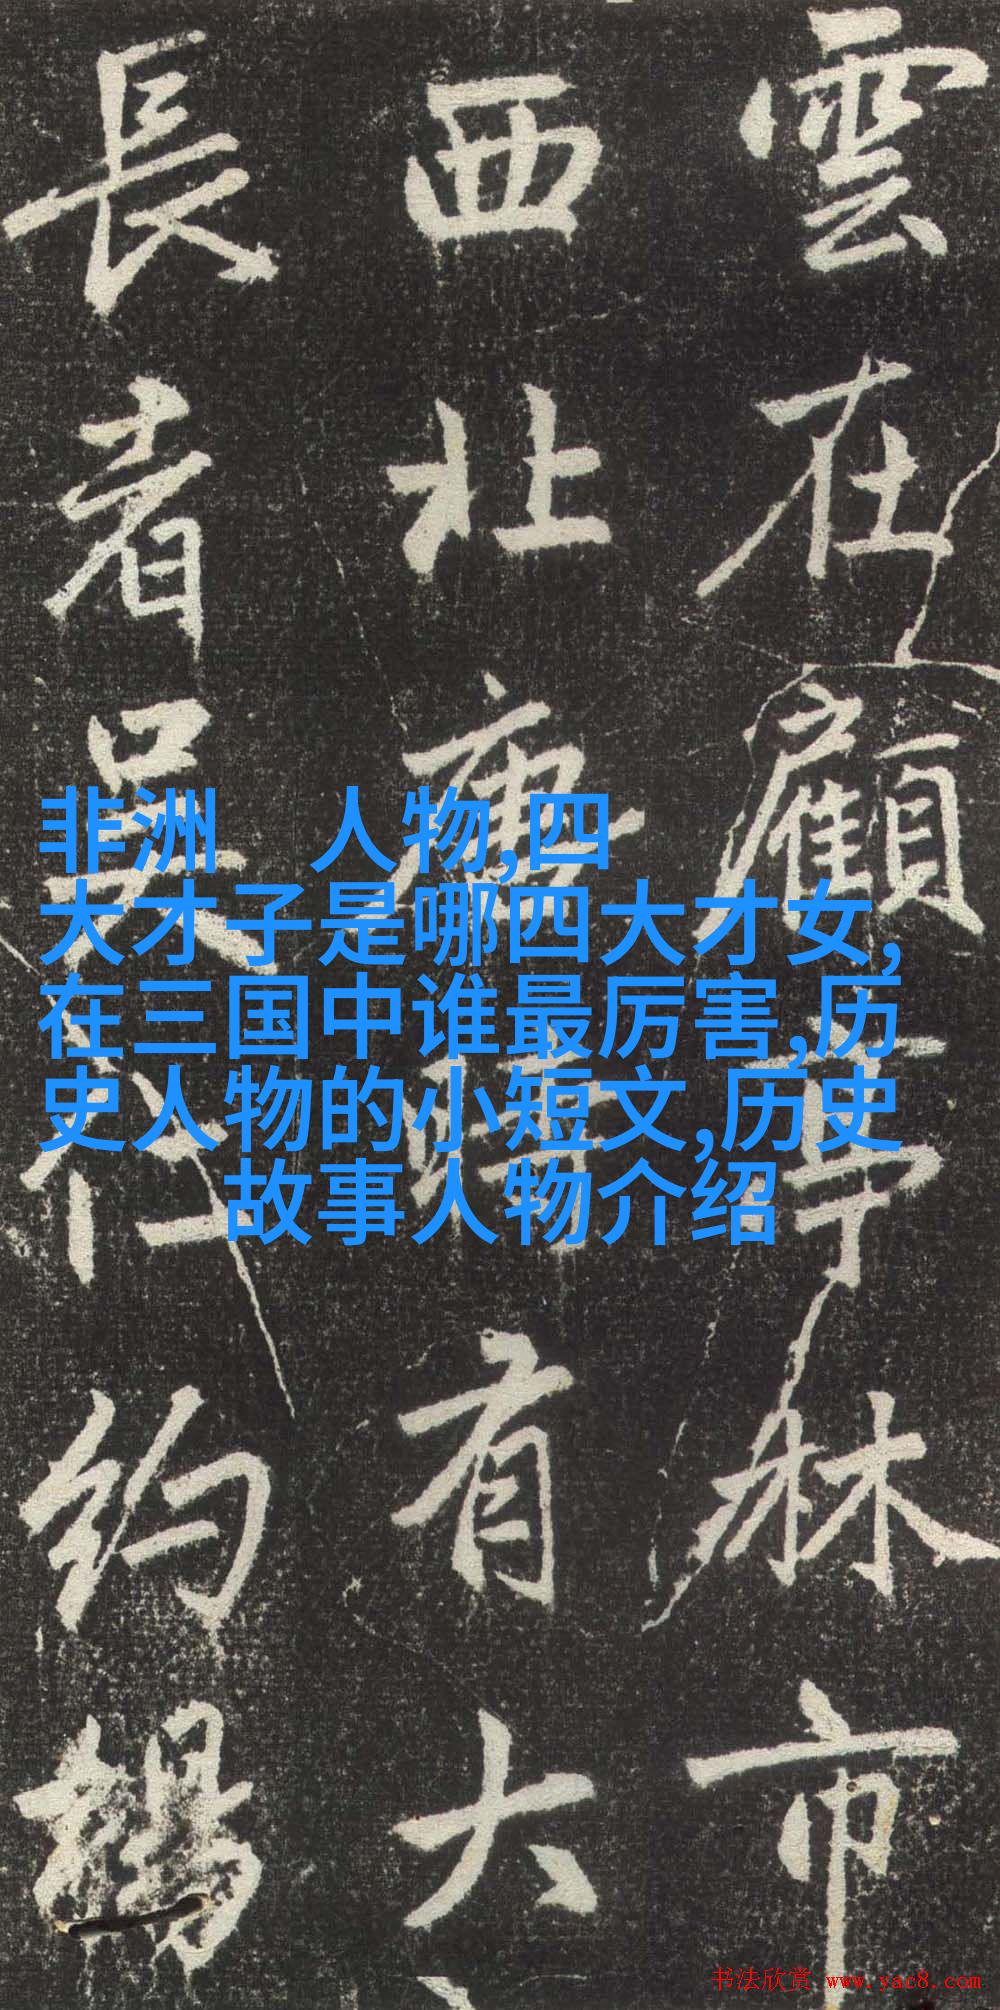 雲在顧亭林市
西北廣陌有大
長者吴仁約楊
非洲 人物,四
大才子是哪四大才女,
在三国中谁最厉害,历
史人物的小短文,历史
故事人物介绍
书法欣赏 www.yac8.com